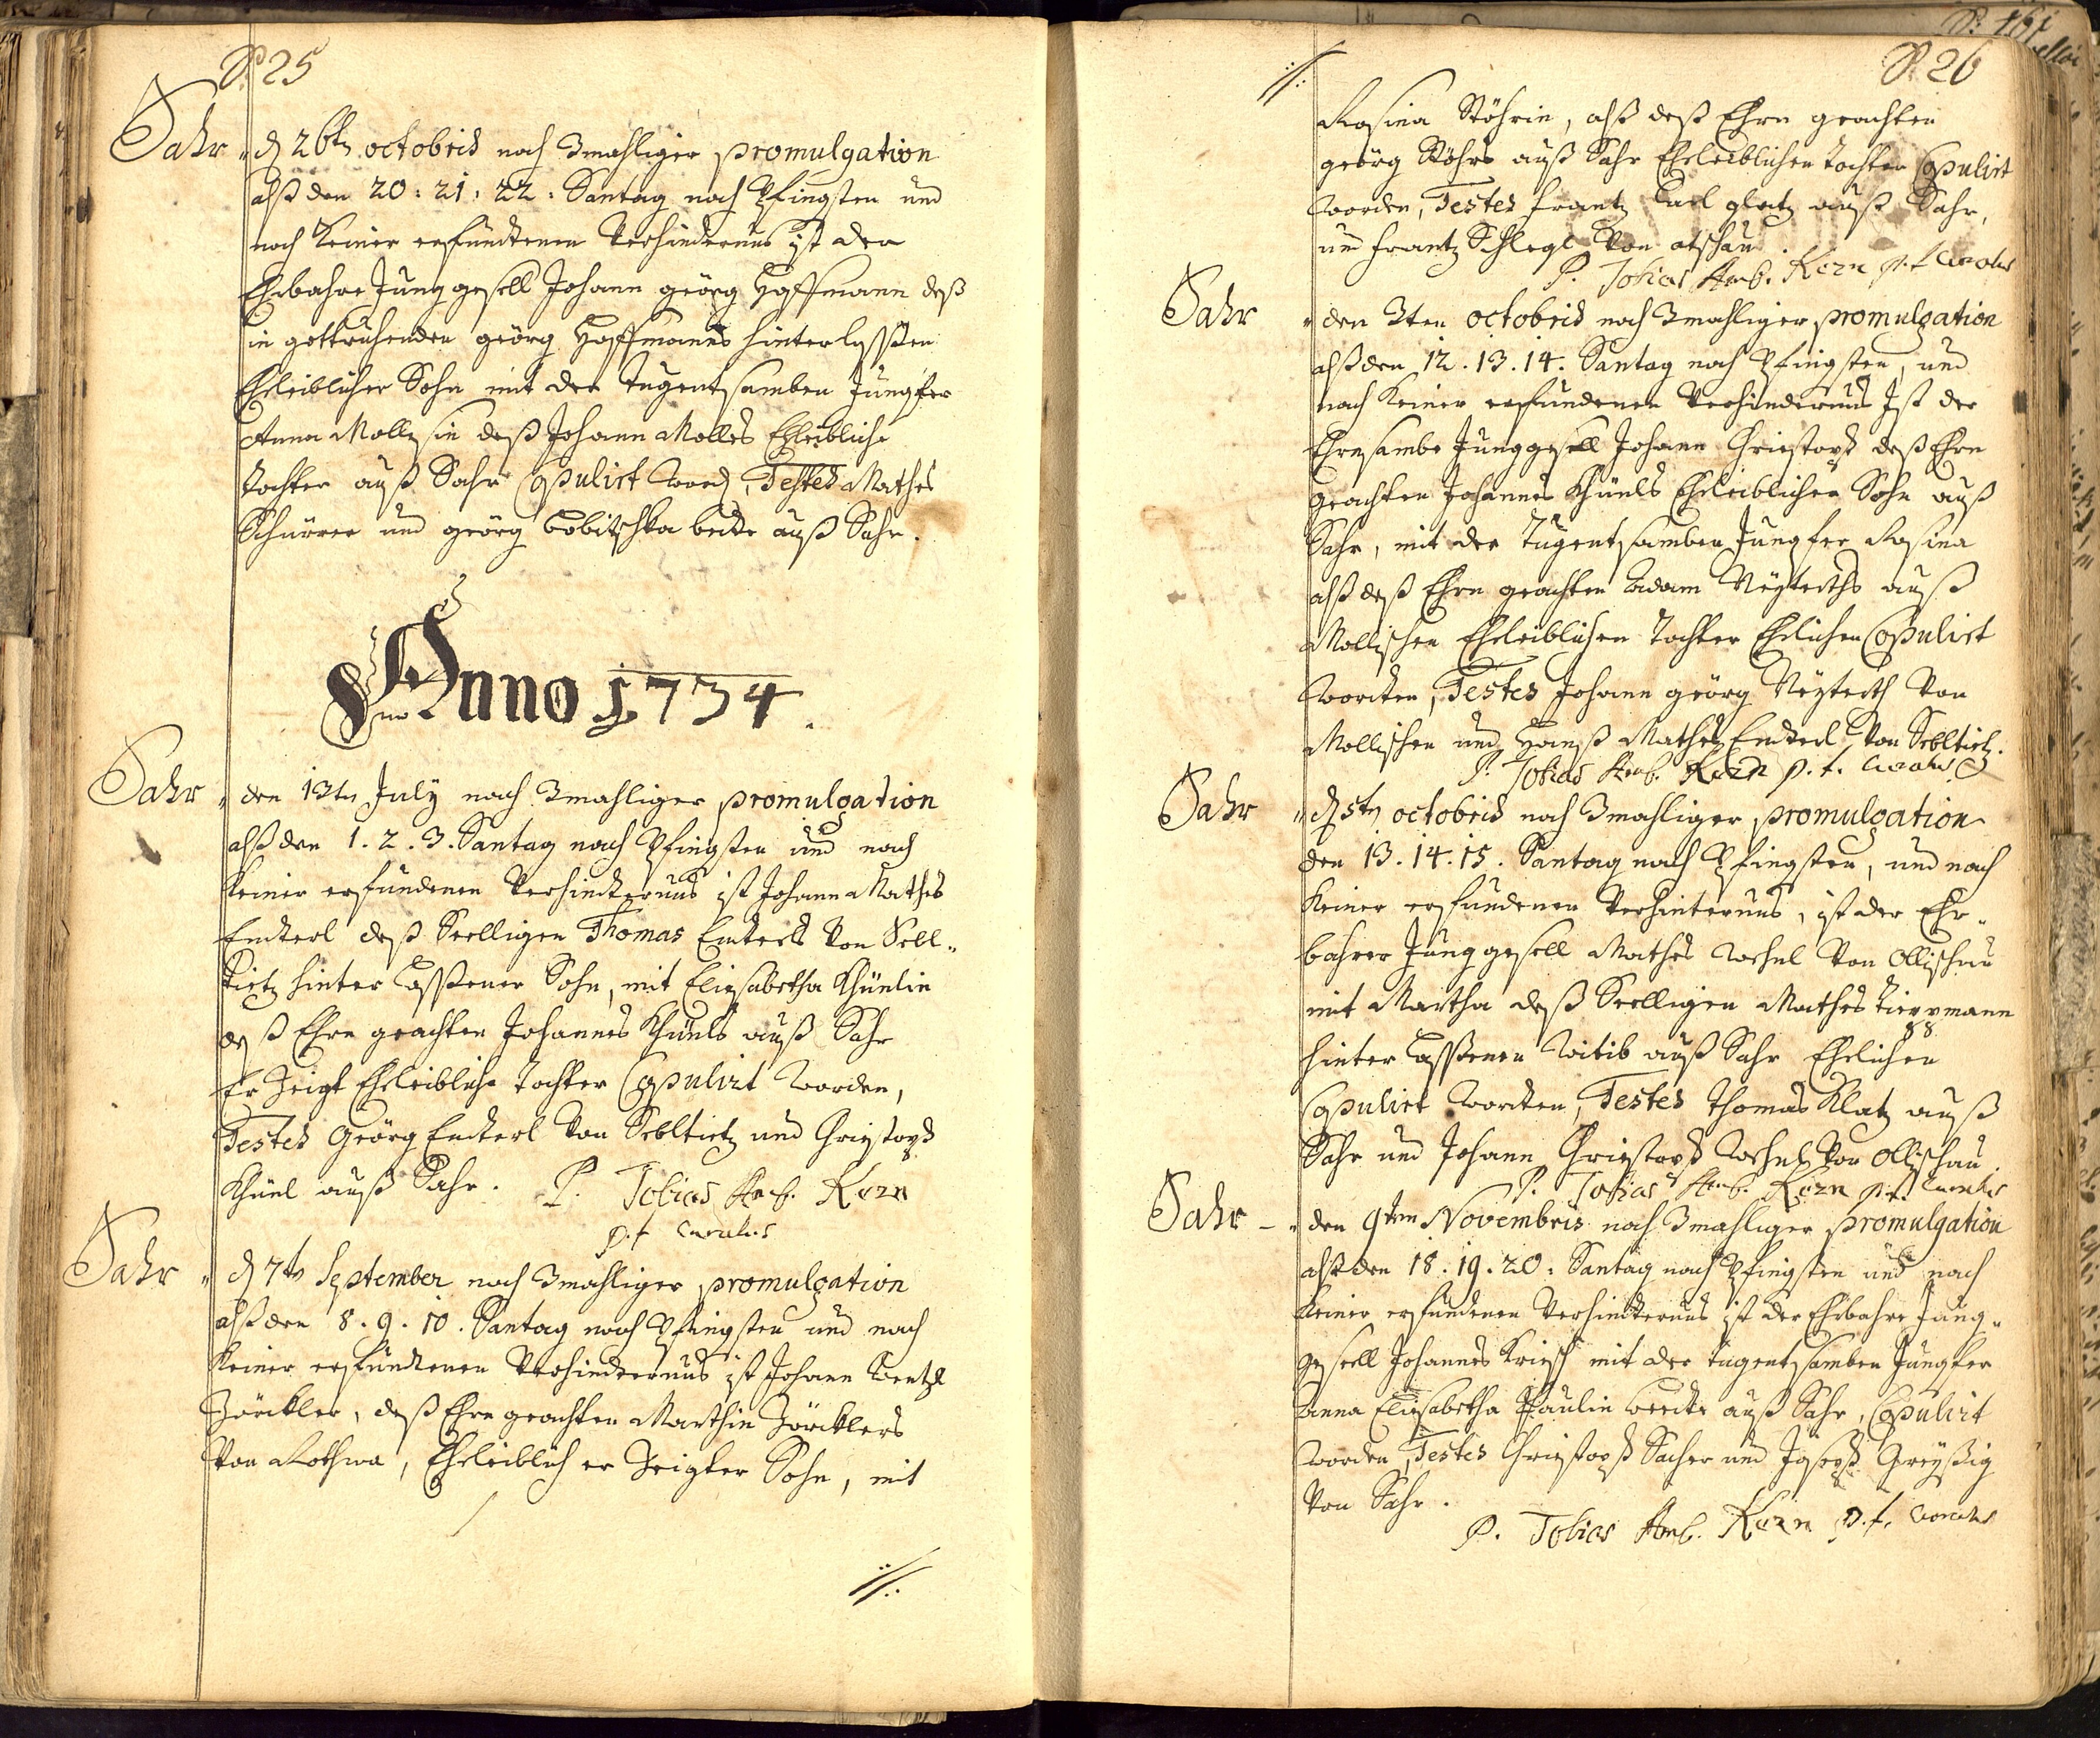 P. 25
Sahr " d 26tn octobris nach 3mahliger promulgation
alß den 20 : 21 : 22 : Santag nach Pfingsten und
nach keiner erfundenen Verhindernus ist der
Ehrbahre Jung gesell Johann georg Hoffmann deß
in gottruhenden georg Hoffmanns hinterlaßten
Eheleiblicher Sohn mit der tugentsamben Jungfer
Anna deß Johann Eheleibliche
Tochter auß Sahr Copulirt word, Testes Mathes
Schnirer und georg beide auß Sahr.
Anno 1734.
Sahr " den 13tn July nach 3mahliger promulgation
alß den 1 . 2 . 3. Santag nach Pfingsten und nach
keiner erfundenen Verhindernus ist Johann Mathes
Enderl deß Seelligen Thomas Enderls Von Sebl-
tietz hinter laßtener Sohn, mit Eliesabetha Khünlin
deß Ehrn geachten Johannes Khünls auß Sahr
Er Zeigt Eheleibliche Tochter Copulirt worden,
Testes Georg Enderl Von Sebltietz und Christoph
Khünl auß Sahr. P. Tobias Amb. Kern
p.t. Curatus
Sahr " d 7tn September nach 3mahliger promulgation
alß den 8 . 9 . 10 . Santag nach Pfingsten und nach
keiner erfundenen Verhindernus ist Johann Wentzl
Zörckler, deß Ehrn geachten Marthin Zörcklers
Von Rothwa, Eheleiblich er Zeigter Sohn, mit
://:
://: P. 26
Rosina Stöhrin, alß deß Ehrn geachten
georg Stöhrs auß Sahr Eheleiblichen Tochter Copulirt
worden, Testes frantz Carl glatz auß Sahr,
und frantz Schlegl Von atschau.
P. Tobias Amb. Kern p.t. Curatus
Sahr " den 3ten octobris nach 3mahliger promulgation
alß den 12 . 13 . 14. Santag nach Pfingsten, und
nach keiner erfundenen Verhindernus Ist der
Ehrsambe Junggesell Johann Christoph deß Ehrn
geachten Johannes Khünls Eheleiblicher Sohn auß
Sahr, mit der tugentsamben Jungfer Rosina
alß deß Ehrn geachten Adam auß
Mollischen Eheleiblichen Tochter Ehelichen Copulirt
worden, Testes Johann georg Von
Mollischen und Hanß Mathes Enderl Von Sebltietz.
P. Tobias Amb. Kern p. t. Curatus
Sahr " d 5tn octobris nach 3mahliger promulgation
den 13 . 14 . 15. Santag nach Pfingsten, und nach
keiner erfundenen Verhinternus, ist der Ehr-
bahrer Jung gesell Mathes Von Ollischau
mit Martha deß Seelligen Mathes
hinter laßtenen Witib auß Sahr Ehelichen
Copulirt worden, Testes Thomas Klatz auß
Sahr und Johann Christoph Von Ollischau.
P. Tobias Amb. Kern p.t. Curatus
Sahr - " den 9ten Novembris nach 3mahliger promulgation
alß den 18 . 19 . 20 : Santag nach Pfingsten und nach
keiner erfundenen Verhindernus ist der Ehrbahre Jung-
gesell Johannes Kriesch mit der tugentsamben Jungfer
Anna Eliesabetha Paulin beede auß Sahr, Copulirt
worden, Testes Christoph Sacher und Joseph Greyßig
Von Sahr.
P. Tobias Amb. Kern p.t. Curatus